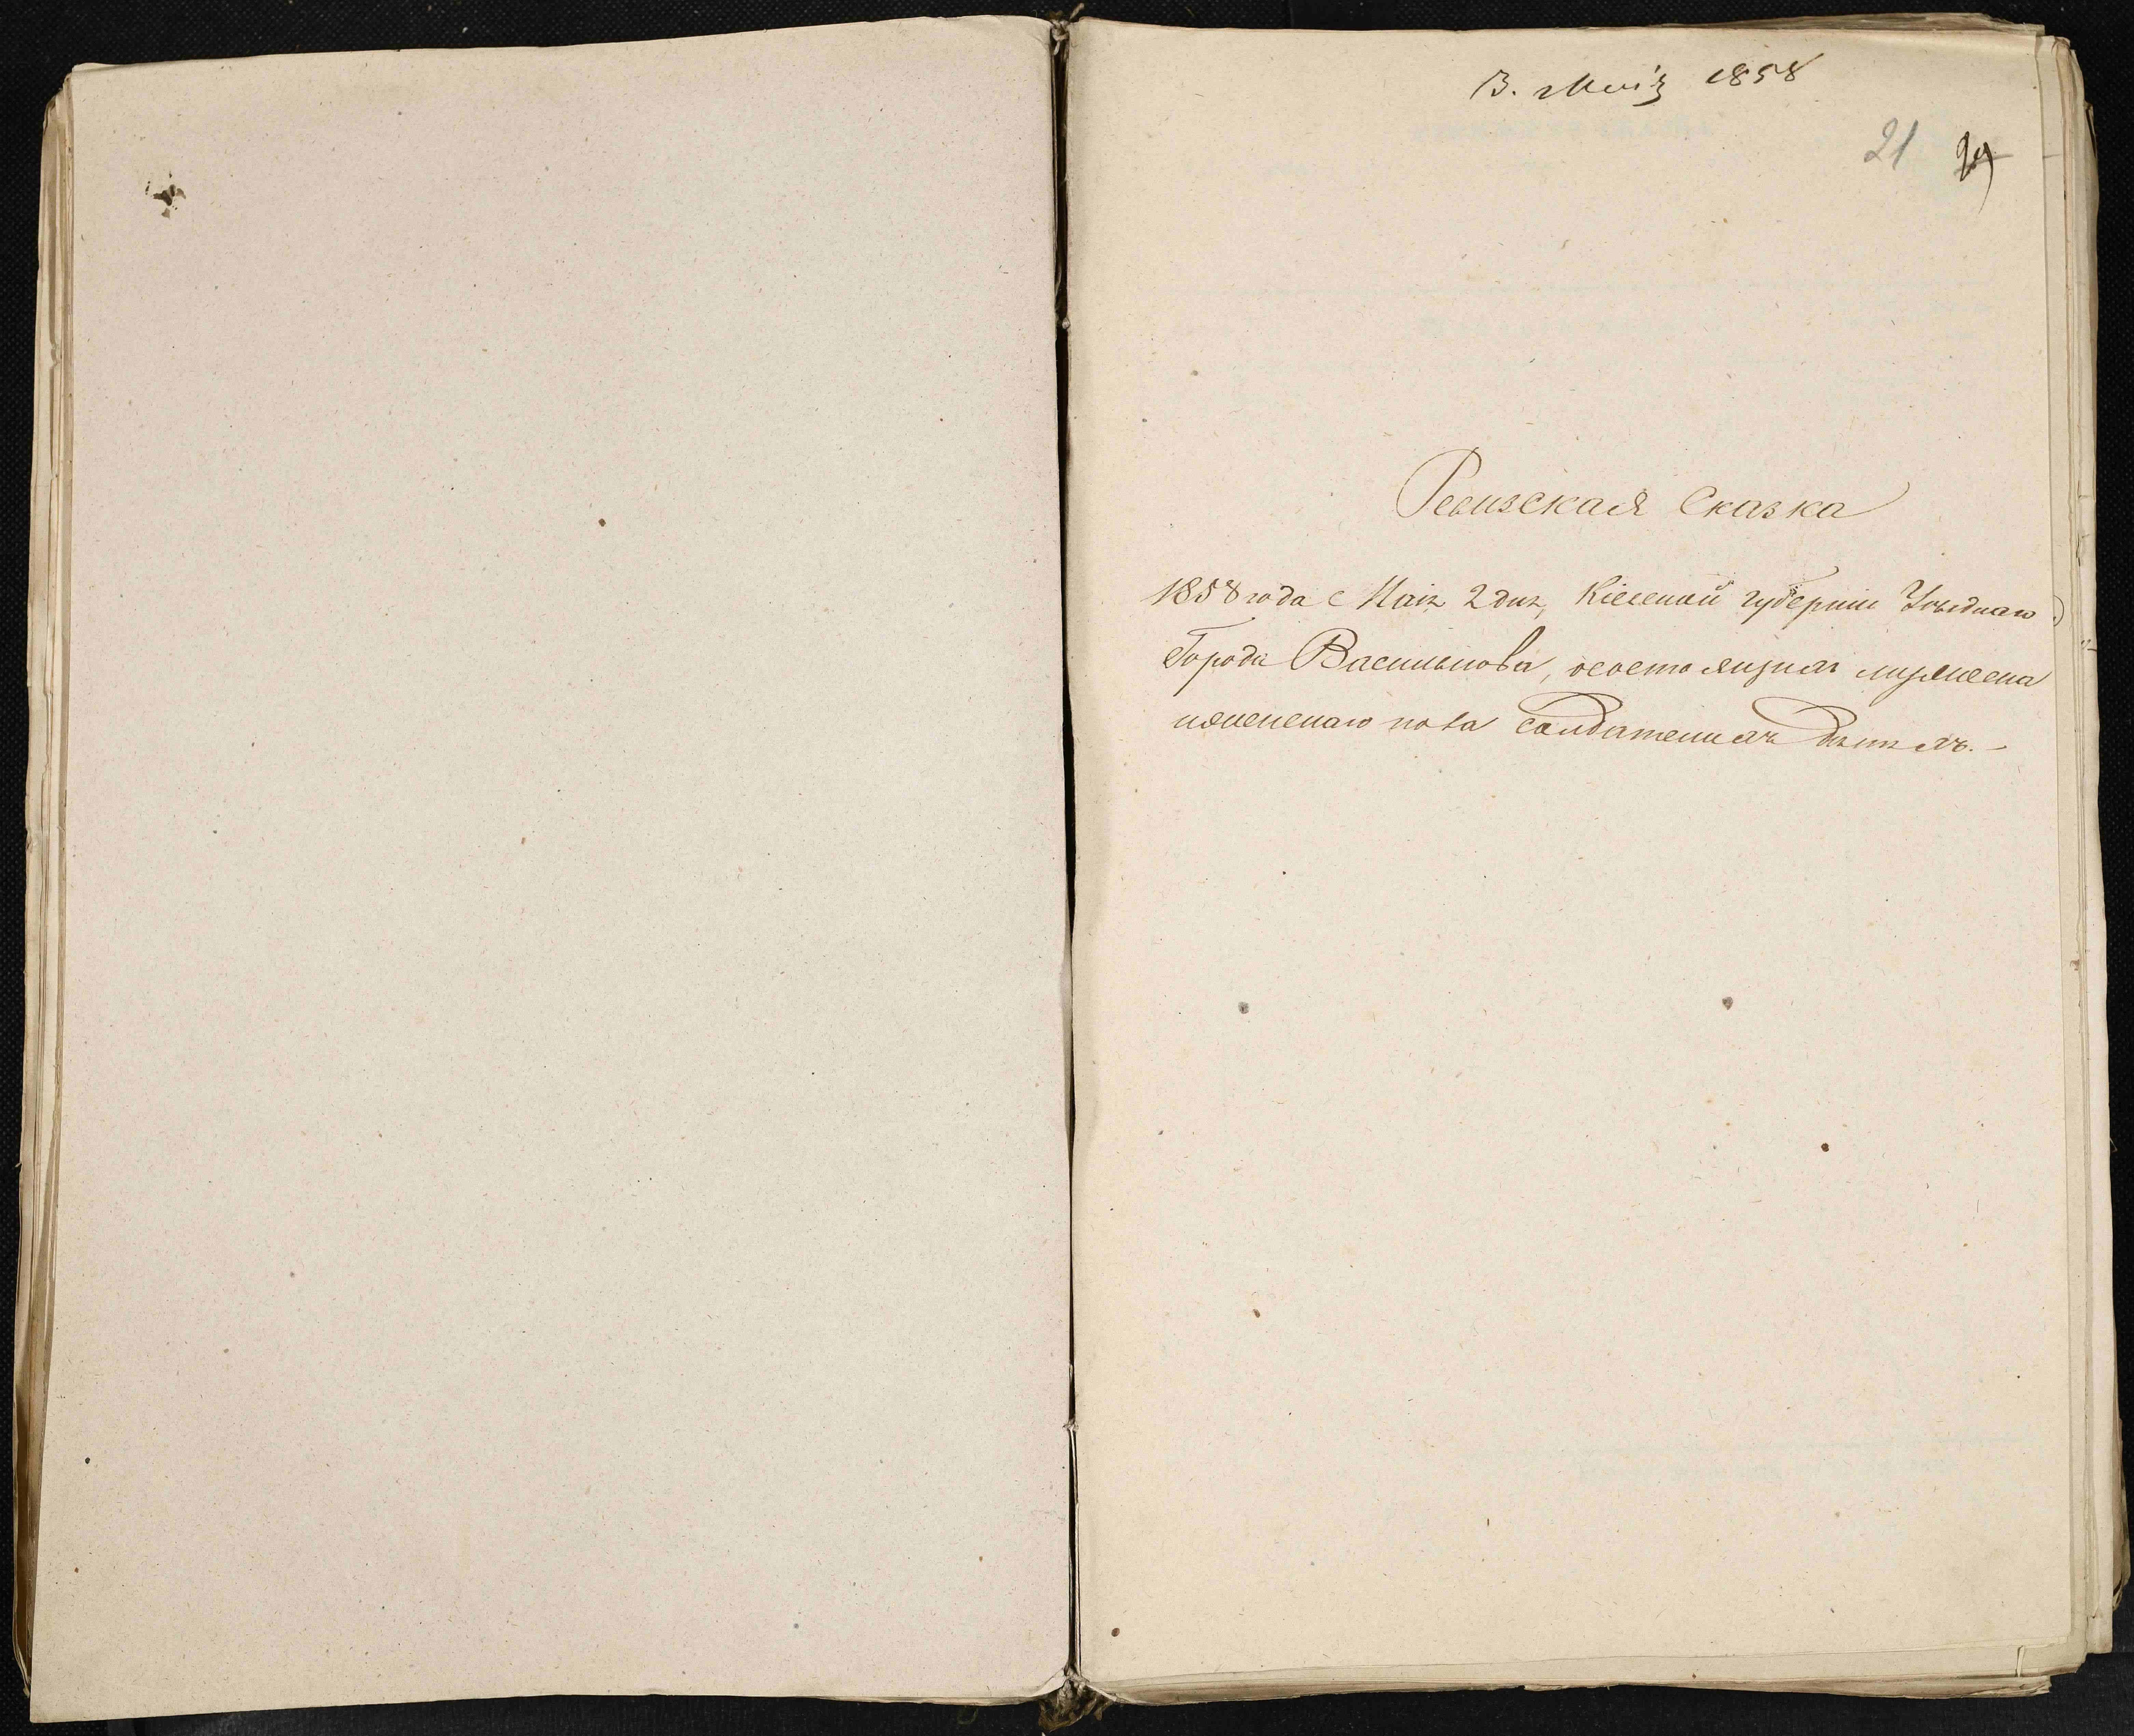 3. Маія 1858
21
Ревизская Сказка
1858 года Маія 2 дня, Кіевской губерніи Уѣзднаго
Города Василькова, о состоящихъ мужеска
и женскаго пола солдатскихъ дѣтяхъ.